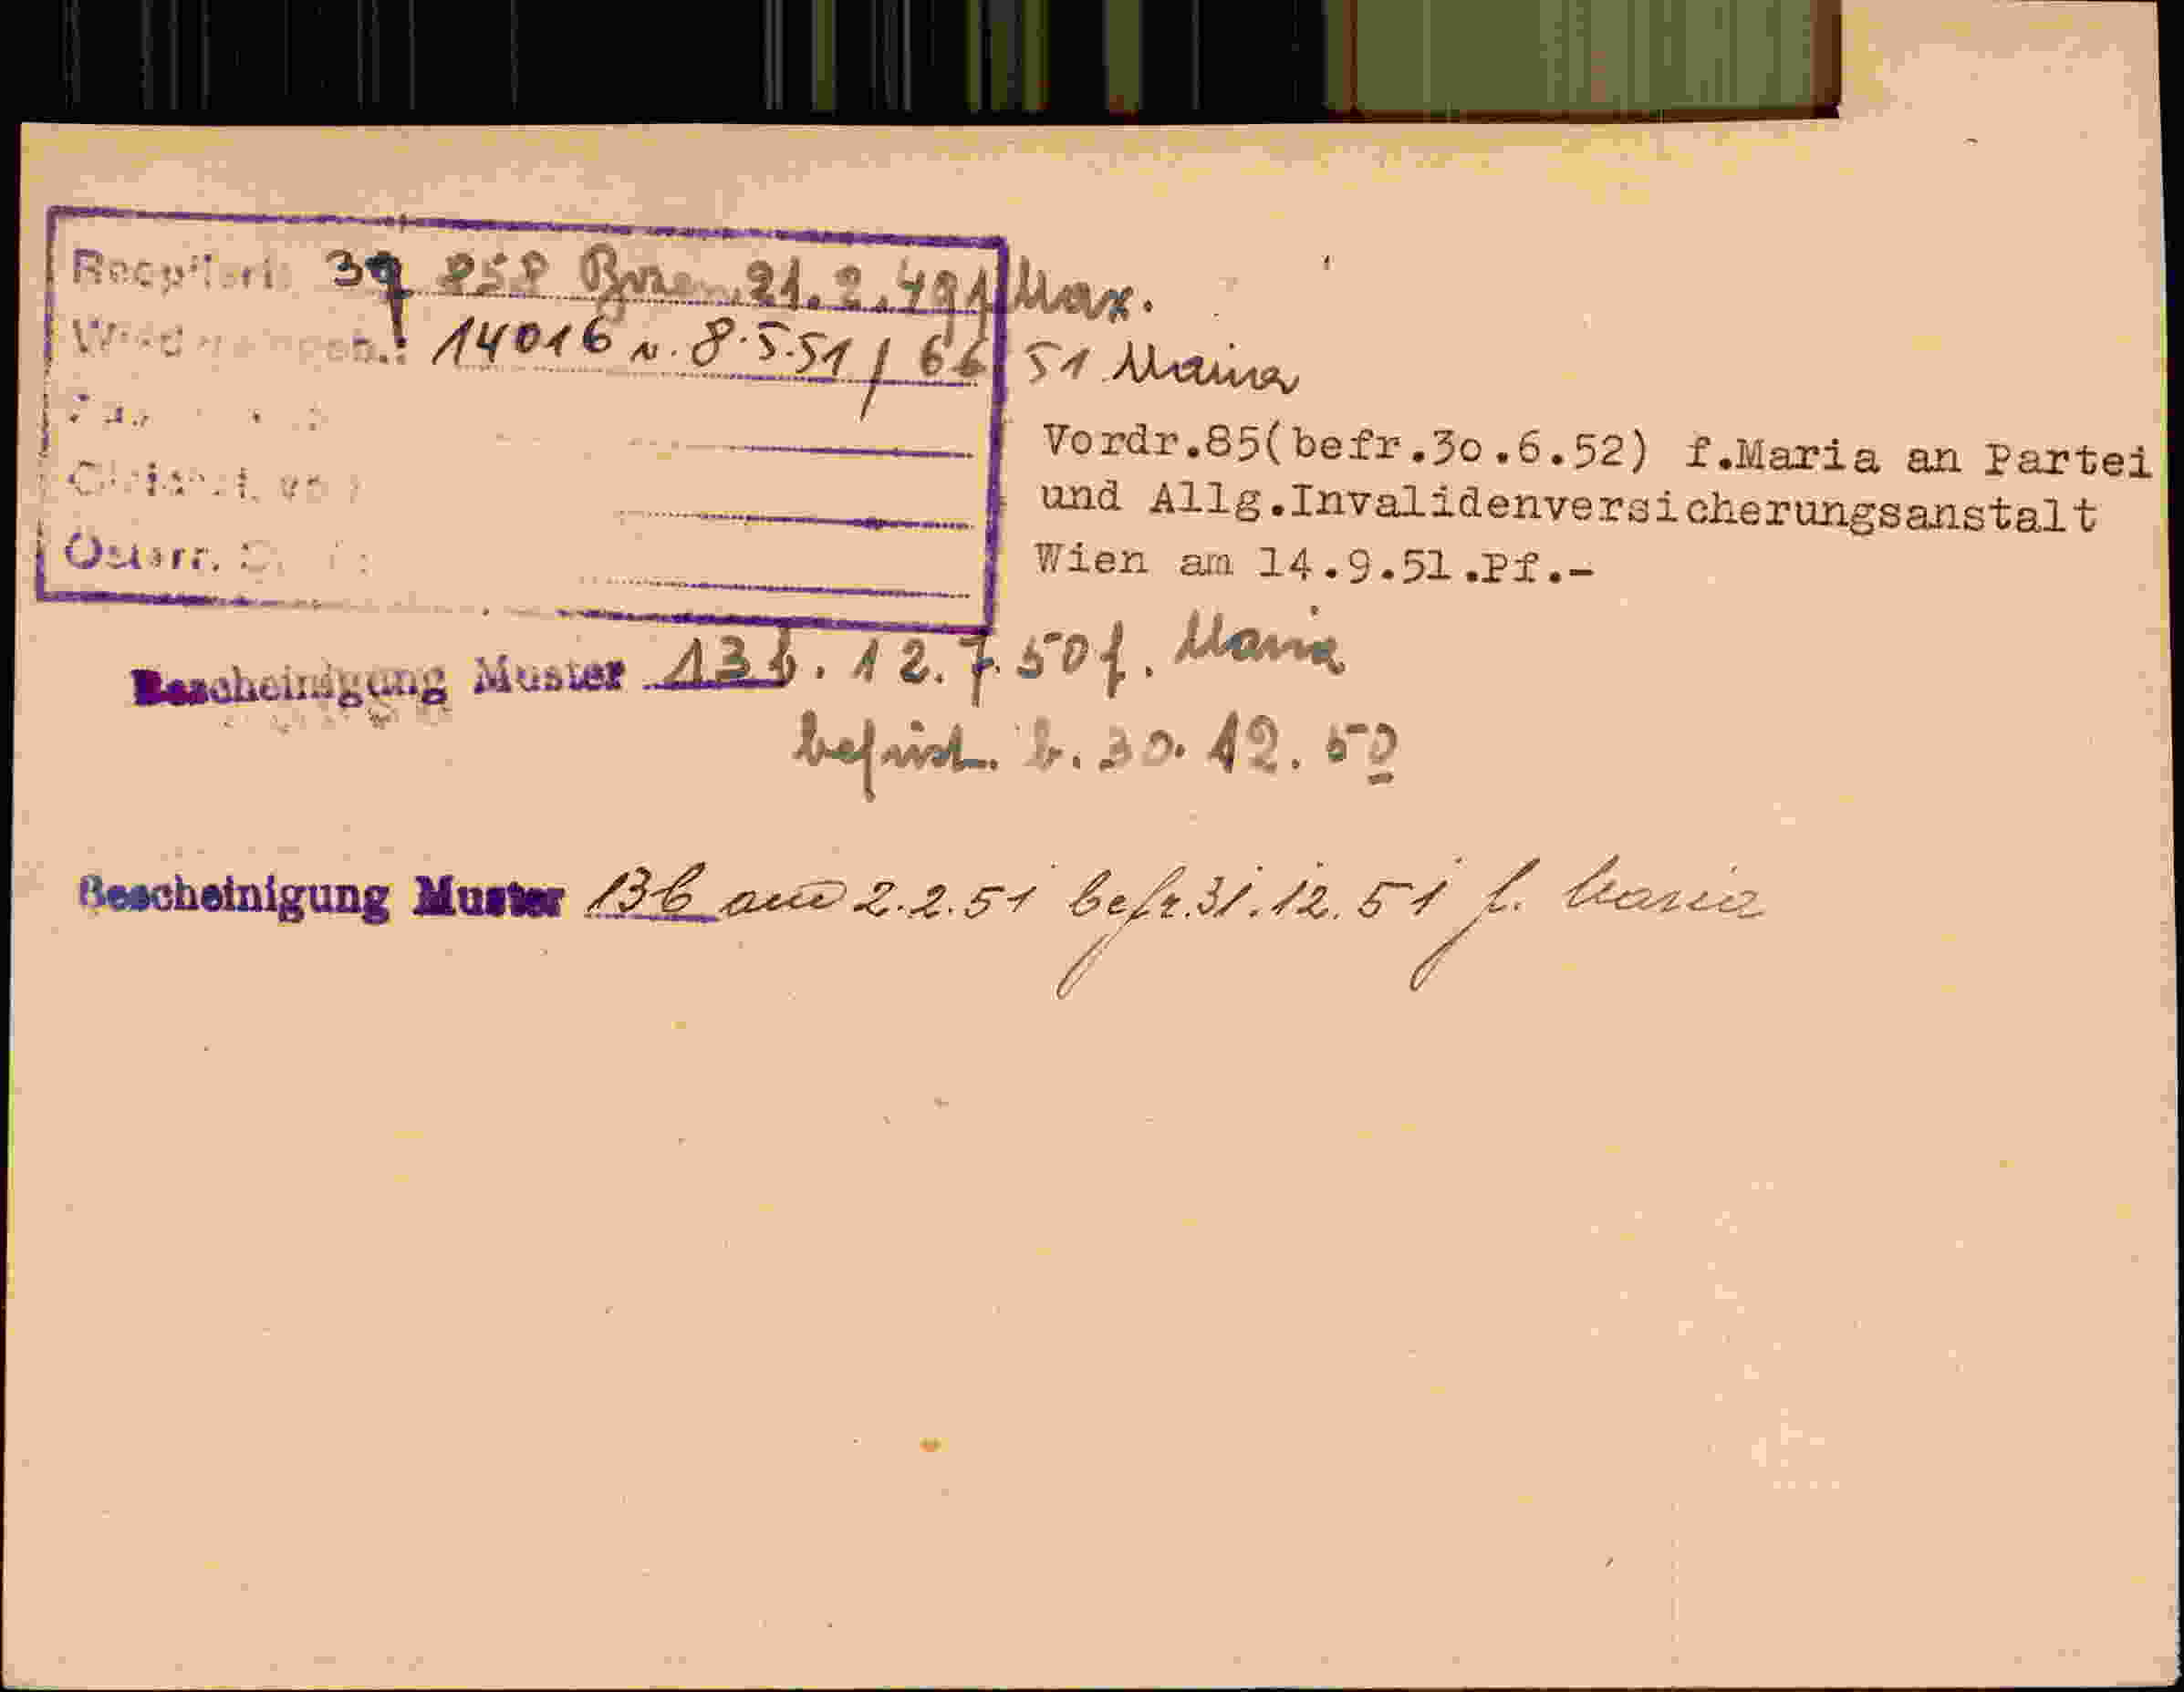 39 858 Bozen 21.2.49 f Max.
14016 v. 8.5.51 / 66 51 Maria
Vordr.85(befr.3o.6.52) f.Maria an Partei
und Allg.Invalidenversicherungsanstalt
Österr.
Wien am 14.9.51.Pf.-
Bescheinigung Muster 13b. 12.7.50 f. Maria
befrist. b. 30.12.50
Bescheinigung Muster 13b am 2.2.51 befr. 31.12.51 f. Maria